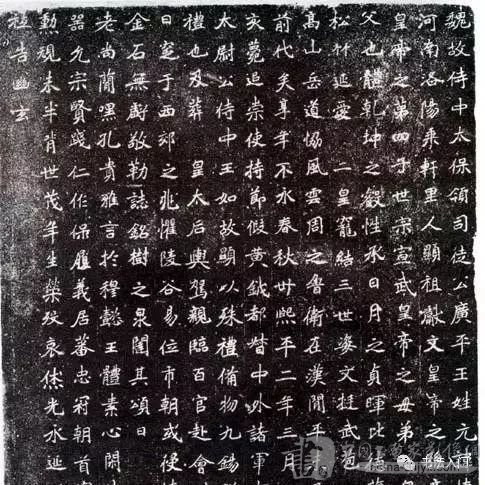 魏故侍中太保領司徒公廣平王姓元
河南洛陽乘軒里人顯祖獻文皇帝之
皇帝之第四子世宗宣武皇帝之母弟
父也體乾坤之叡性承日月之貞暉比
松竹延愛二皇寵結三世姿文挺武苞
高山岳道協風雲周之魯衛在漢間平
前代矣享年不永春秋卅熙平二年三月
亥薨追崇使持節假黃鉞都督中外諸軍
太尉公侍中王如故顯以殊禮備物九錫
禮也及葬皇太后輿駕親臨百官赴會
日窆于西郊之兆懼陵谷易位市朝或侵
金石無虧敬勒誌銘樹之泉闥其頌曰
老尚簡嘿孔貴雅言於穆懿王體素心閑
器允宗賢踐仁作保履義居蕃忠冠朝首
勳規未半背世茂年生榮歿哀休光永延
祇告幽玄